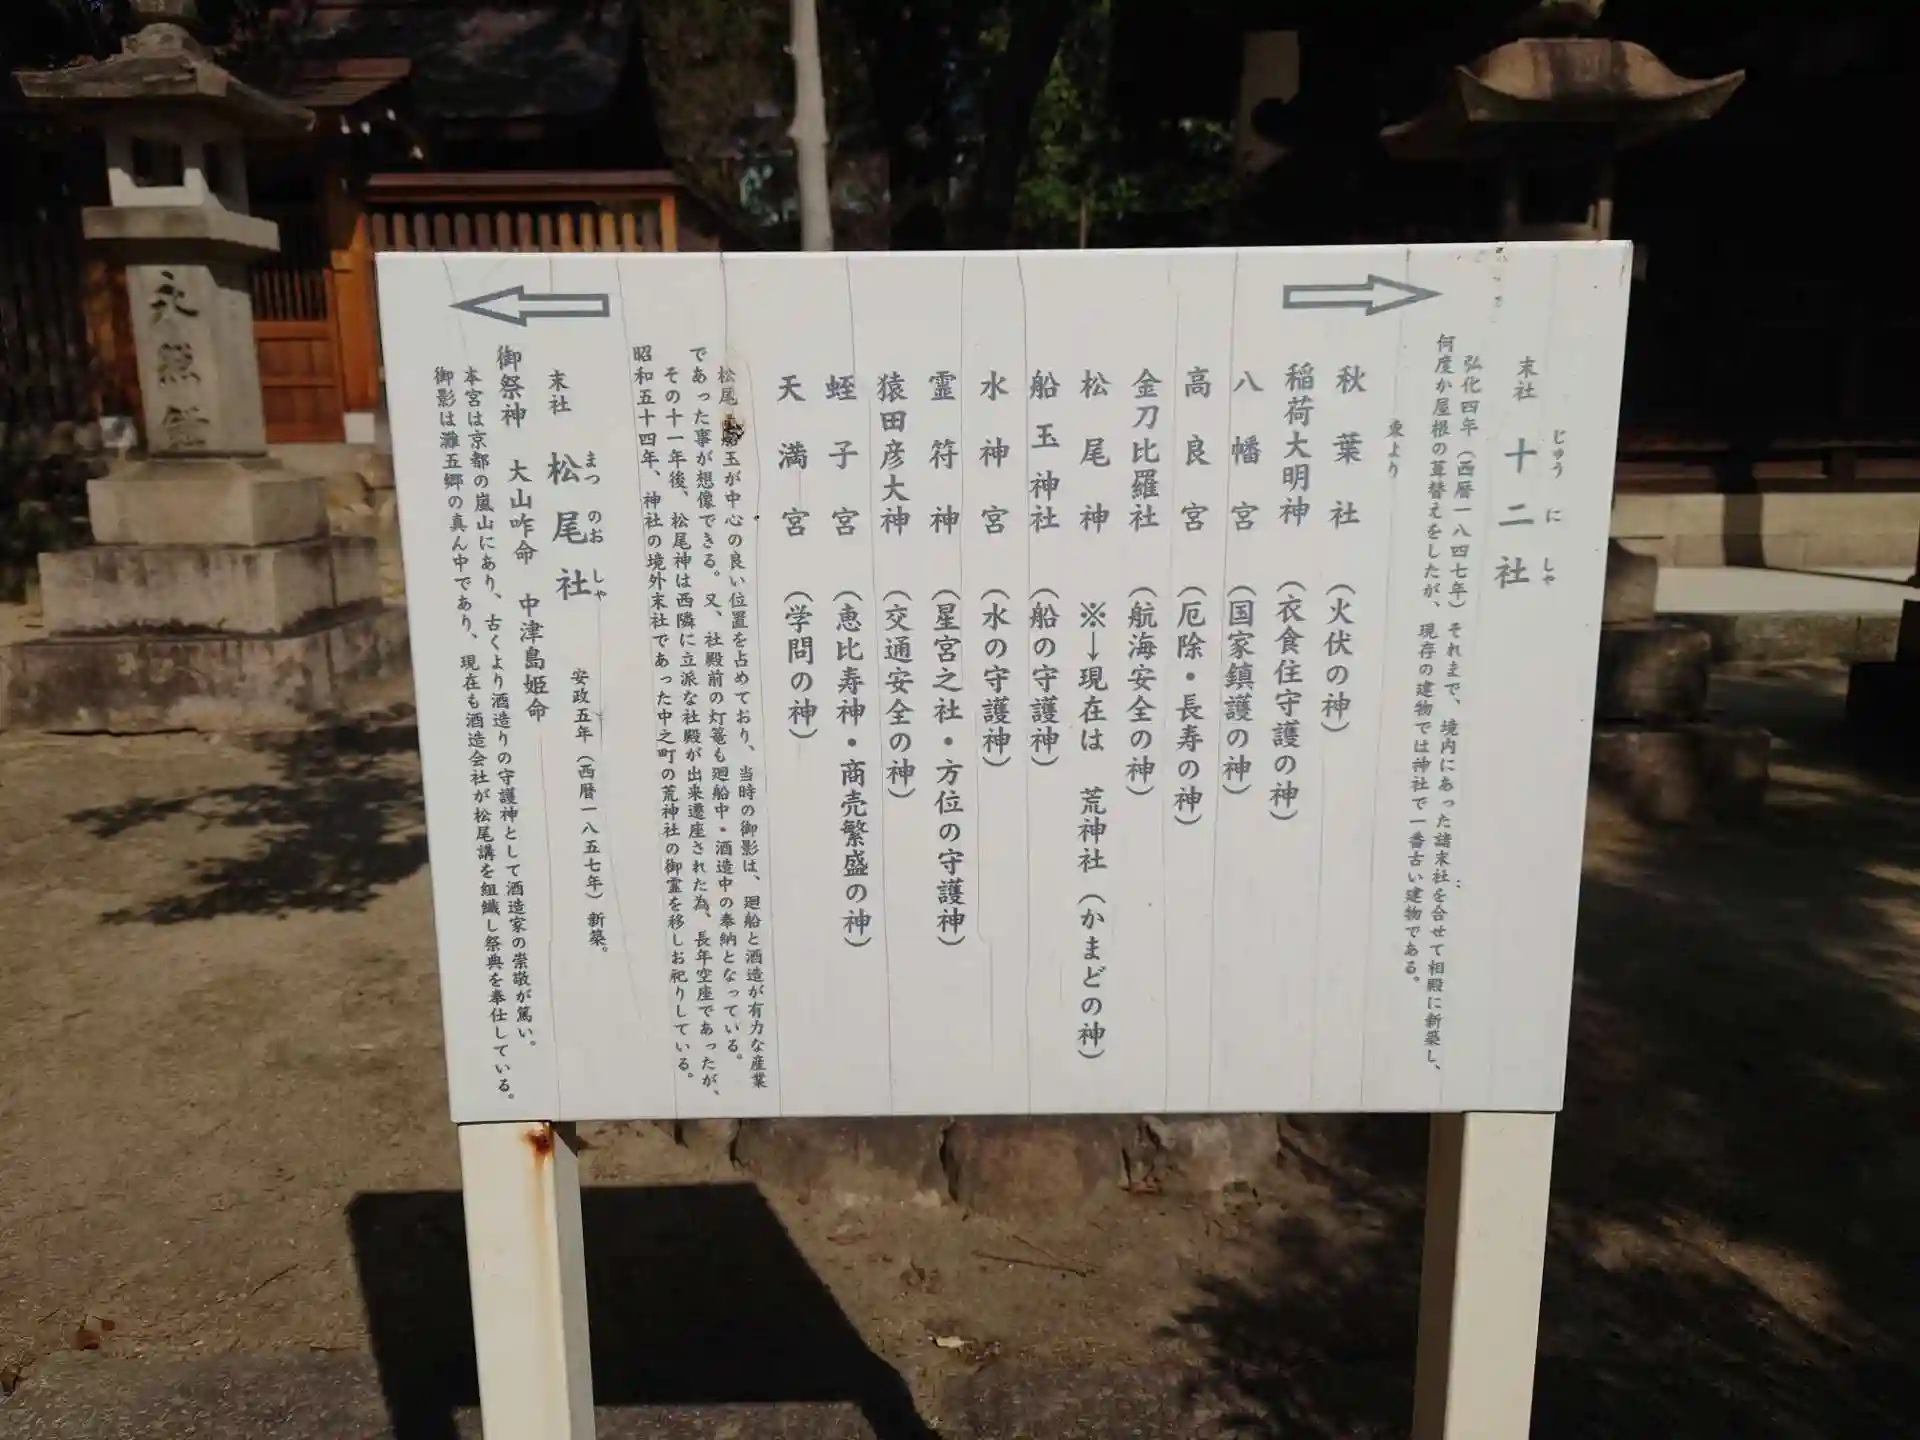 末社 十二社
じゅう に しゃ
弘化四年（西暦一八四七年）それまで、境内にあった諸末社を合せて相殿に新築し、
何度か屋根の葺替えをしたが、現存の建物では神社で一番古い建物である。
東より
秋葉社（火伏の神）
稲荷大明神（衣食住守護の神）
八幡宮（国家鎮護の神）
高良宮（厄除・長寿の神）
金刀比羅社（航海安全の神）
松尾神 ※→現在は 荒神社（かまどの神）
船玉神社（船の守護神）
水神宮（水の守護神）
霊符神（星宮之社・方位の守護神）
猿田彦大神（交通安全の神）
蛭子宮（恵比寿神・商売繁盛の神）
天満宮（学問の神）
松尾 船玉が中心の良い位置を占めており、当時の御影は、廻船と酒造が有力な産業
であった事が想像できる。又、社殿前の灯篭も廻船中・酒造中の奉納となっている。
その十一年後、松尾神は西隣に立派な社殿が出来遷座された為、長年空座であったが、
昭和五十四年、神社の境外末社であった中之町の荒神社の御霊を移しお祀りしている。
末社 松尾社 安政五年（西暦一八五七年）新築。
まつ のお しゃ
御祭神 大山咋命 中津島姫命
本宮は京都の嵐山にあり、古くより酒造りの守護神として酒造家の崇敬が篤い。
御影は灘五郷の真ん中であり、現在も酒造会社が松尾講を組織し祭典を奉仕している。